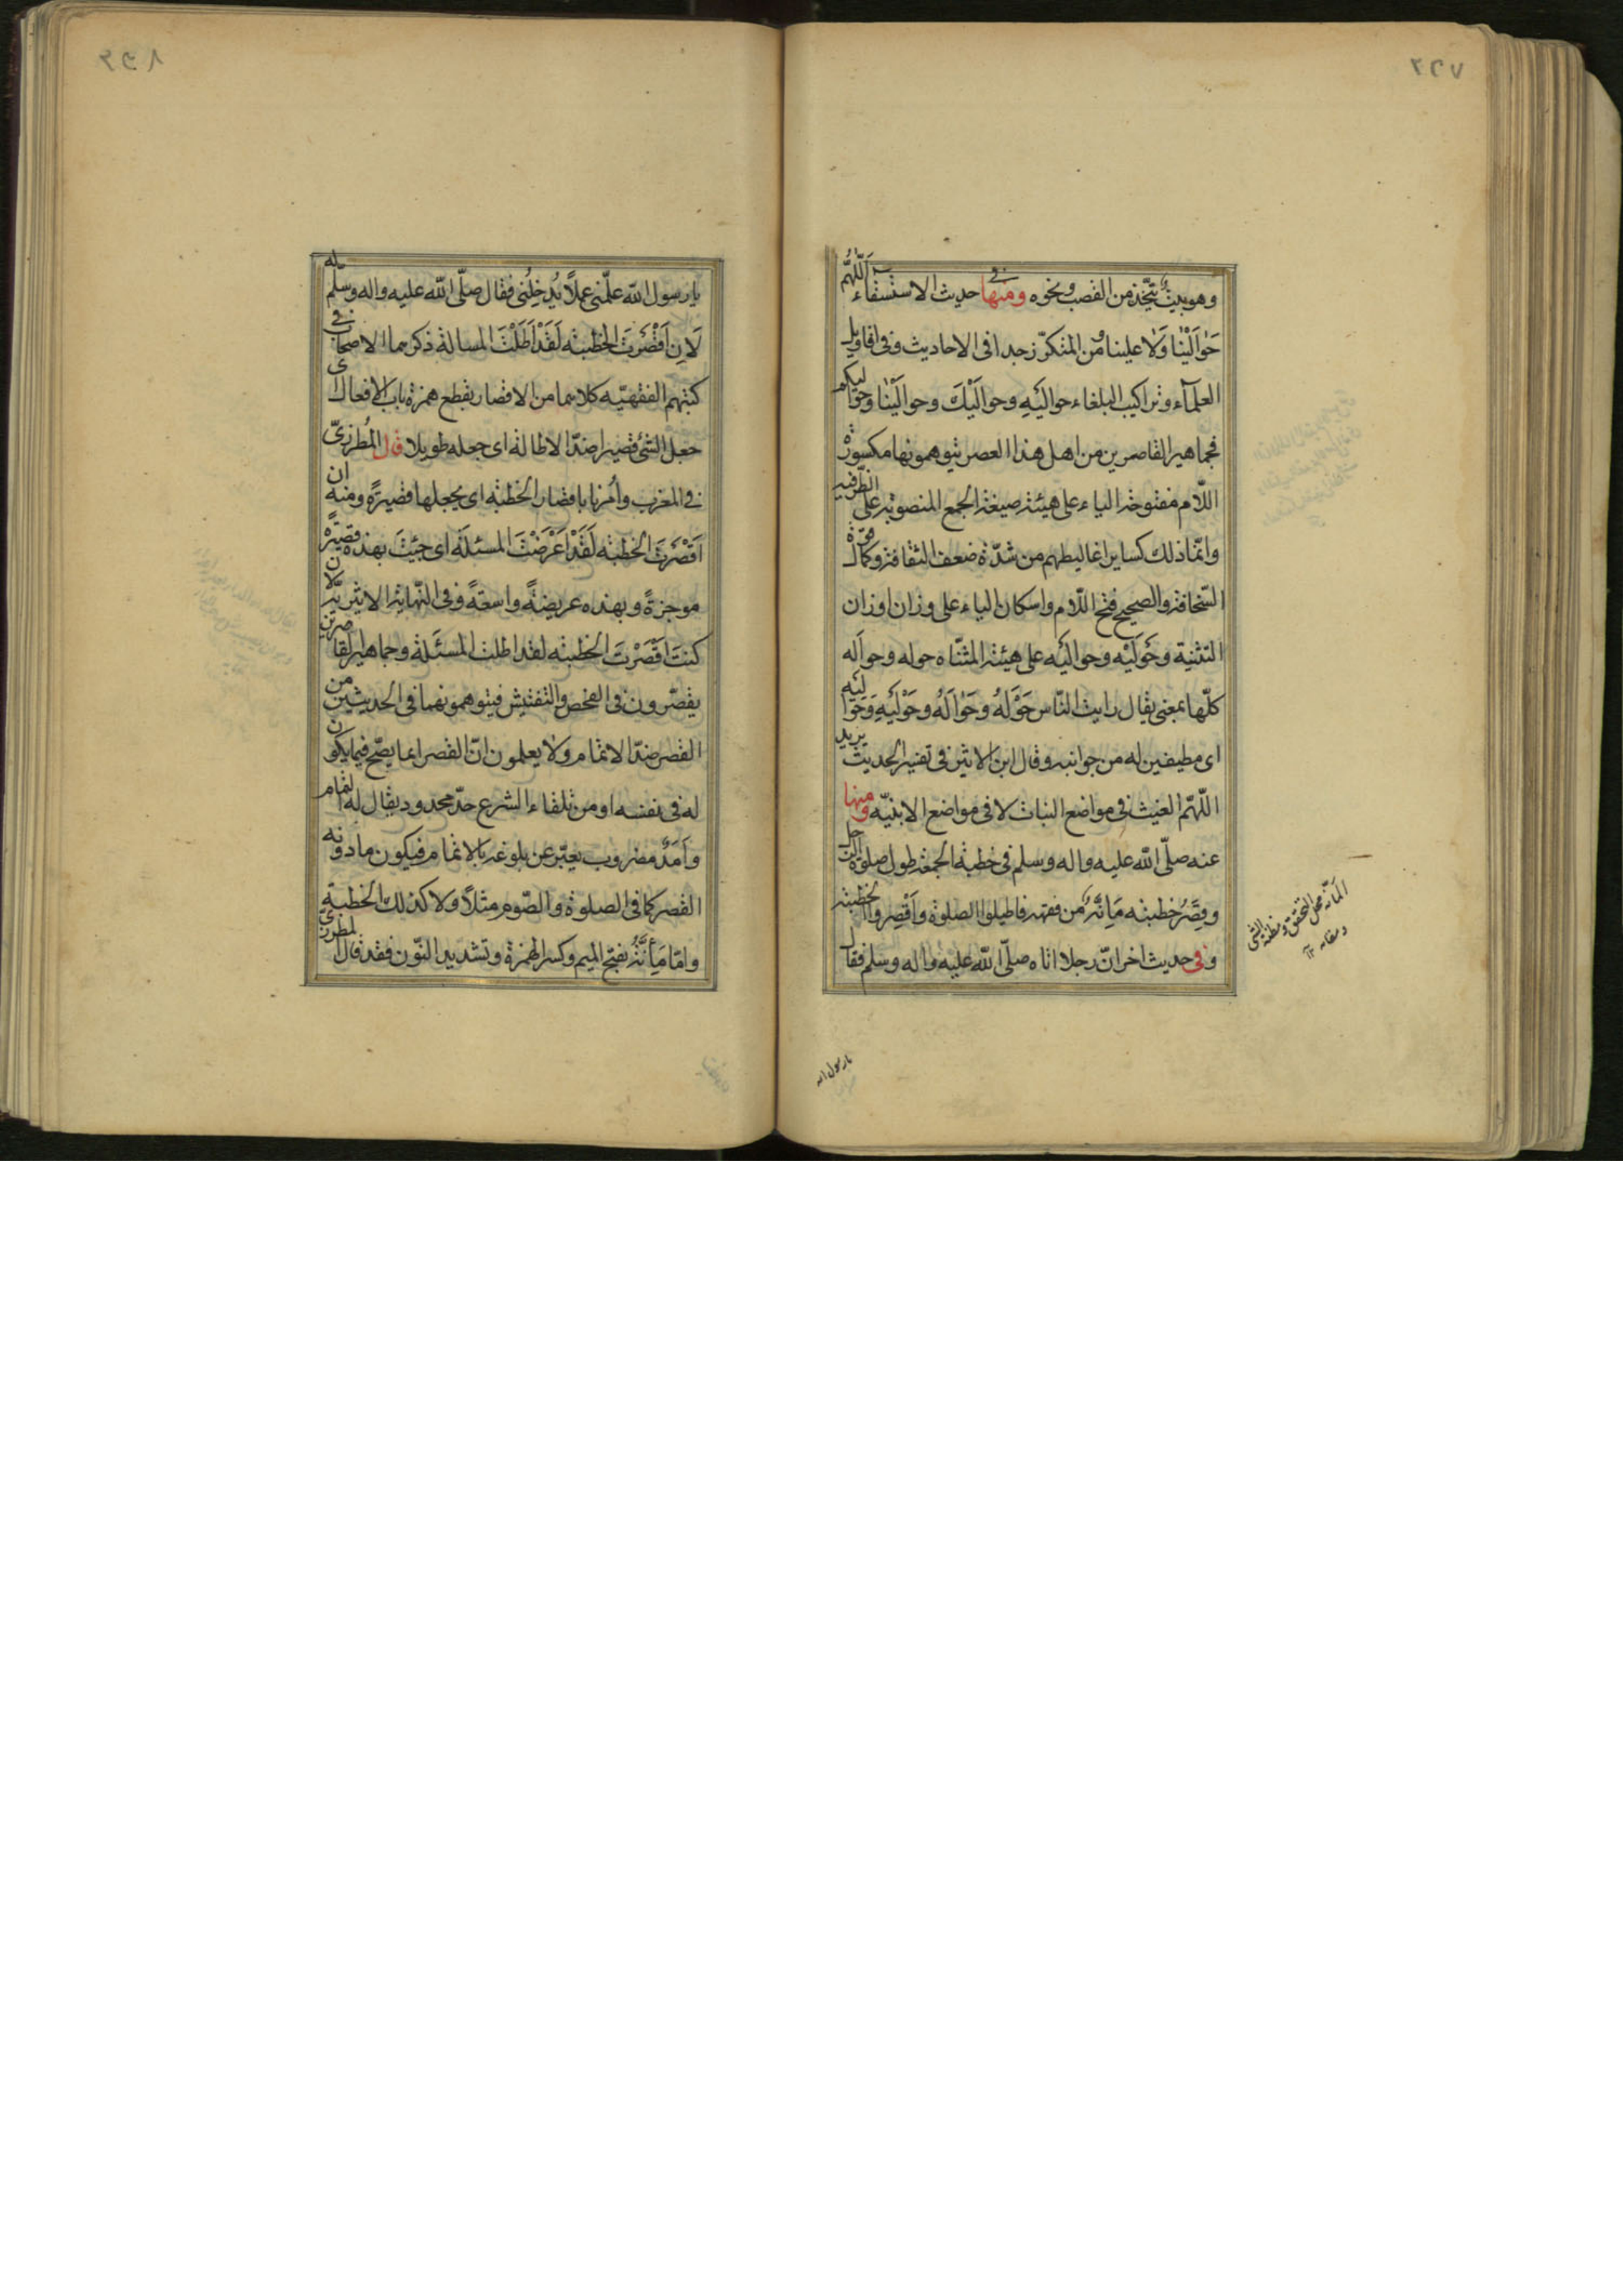 وهو بيت يتّخذ من القصب ونحوه ومنها في حديث الاستسقاء اَللّهُمَّ
حَوٰالَيْنٰا وَلٰا علينا ومن المتكرّر جدا في الاحاديث وفي اقاويل
العلمآء وتراكيب البلغاء حوالَيْهِ وحوالَيْكَ وحوالَيْنٰا وحوٰاليكم
فجماهير القاصرين من اهل هذا العصر يتوهمونها مكسورة
اللّام مفتوحة الياء على هيئة صيغة الجمع المنصوبة على الظرفية
وانّما ذلك كساير اغاليطهم من شدّة ضعف الثقافة وكمال قوّة
السّخافة والصحيح فتح اللّام واسكان الياء على وزان اوزان
التثنية وحَوْلَيْه وحوالَيْه على هيئة المثنّاه حوله وحوالَه
كلّها بمعنى يقال رايت النّاس حَوْلَهُ وَحَوٰالَهُ وحَوْلَيْهِ وَحَوٰالَيْهِ
اى مطيفين له من جوانبه وقال ابن الاثير في تفسير الحديث يريد
اللّهمّ الغيث في مواضع النبات لا في مواضع الابنيّه ومنها
عنه صلّى اللّه عليه واله وسلم في خطبة الجمعة طول صلوة الرجل
وقِصَرُ خطبته مَإِنَّةٌ من فقهه فاطيلوا الصلوة وأَقْصِروا الخطبة
وفى حديث اخر انّ رجلا اتاه صلّى اللّه عليه واله وسلم فقال
المأنّه محل التحقق ومظنة الشئ
يا رسول الله
يا رسول اللّه علّمنى عملاً يُدخِلُنى فقال صلّى اللّه عليه واله وسلّم
لَاِن اَقْصَرتَ الخطبة لَقَدْ اَطَلْتَ المسالة ذكرهما الاصحاب في
كتبهم الفقهيّه كلاهما من الاقصار بقطع همزة باب الافعال اى
جعل الشئ قصيرا ضدّ الاطالة اى جعله طويلا قال المُطرزىّ
في المغرب وأُمرنا باقصار الخطبة اى يجعلها قصيرَةً ومنه ان
اَقْصَرتَ الخطبة لَقَدْ اَعْرَضْتَ المسئلَه اى جئتَ بهذه قصيرةً
موجزةً وبهذه عريضةً واسعةً وفي النّهاية الاثيريّة لان
كنتَ اَقْصَرْتَ الخطبة لقد اطلت المسئَلة وجماهير القاصرين
يقصّرون في الفحص والتفتيش فيتوهمونهما في الحديثين من
القصر ضدّ الاتمام ولا يعلمون انّ القصر انما يصحّ فيما يكون
له في نفسه او من تلقاء الشرع حدّ محدود يقال له التمام
وأمَدٌ مضروب يعبّر عن بلوغه بالاتمام فيكون ما دونه
القصر كما في الصلوة والصّوم مثلاً ولا كذلك الخطبة
وامّا مَإِنَّةٌ بفتح الميم وكسر الهمزة وتشديد النّون فقد قال المطرزىّ